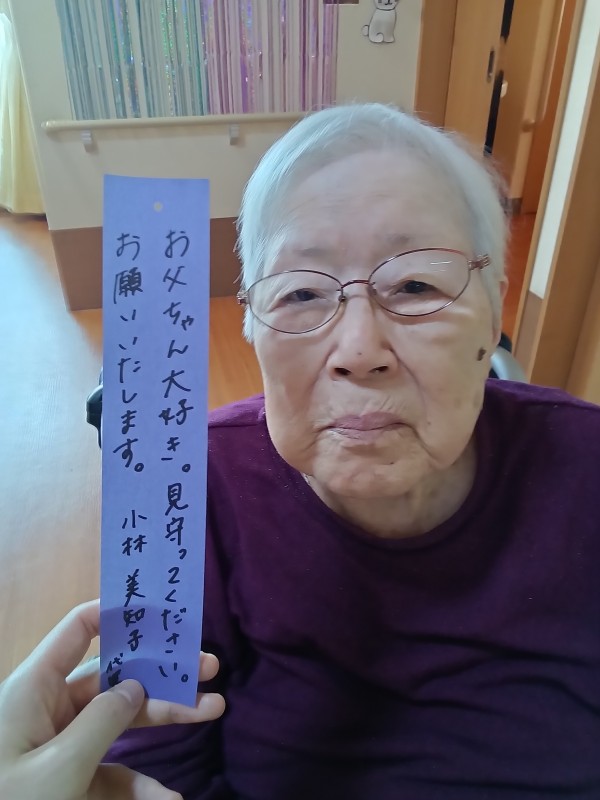 お父ちゃん大好き。見守ってください。
お願いいたします。
小林 美知子
代